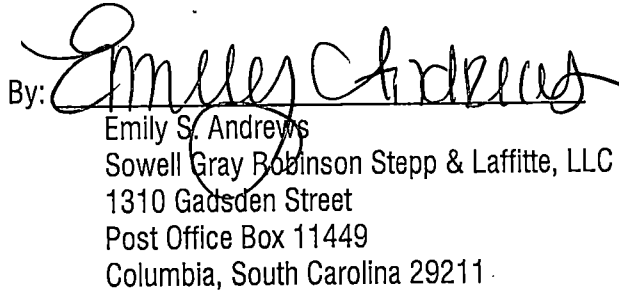 By: Emily Andrews
Emily S. Andrews
Sowell Gray Robinson Stepp & Laffitte, LLC
1310 Gadsden Street
Post Office Box 11449
Columbia, South Carolina 29211